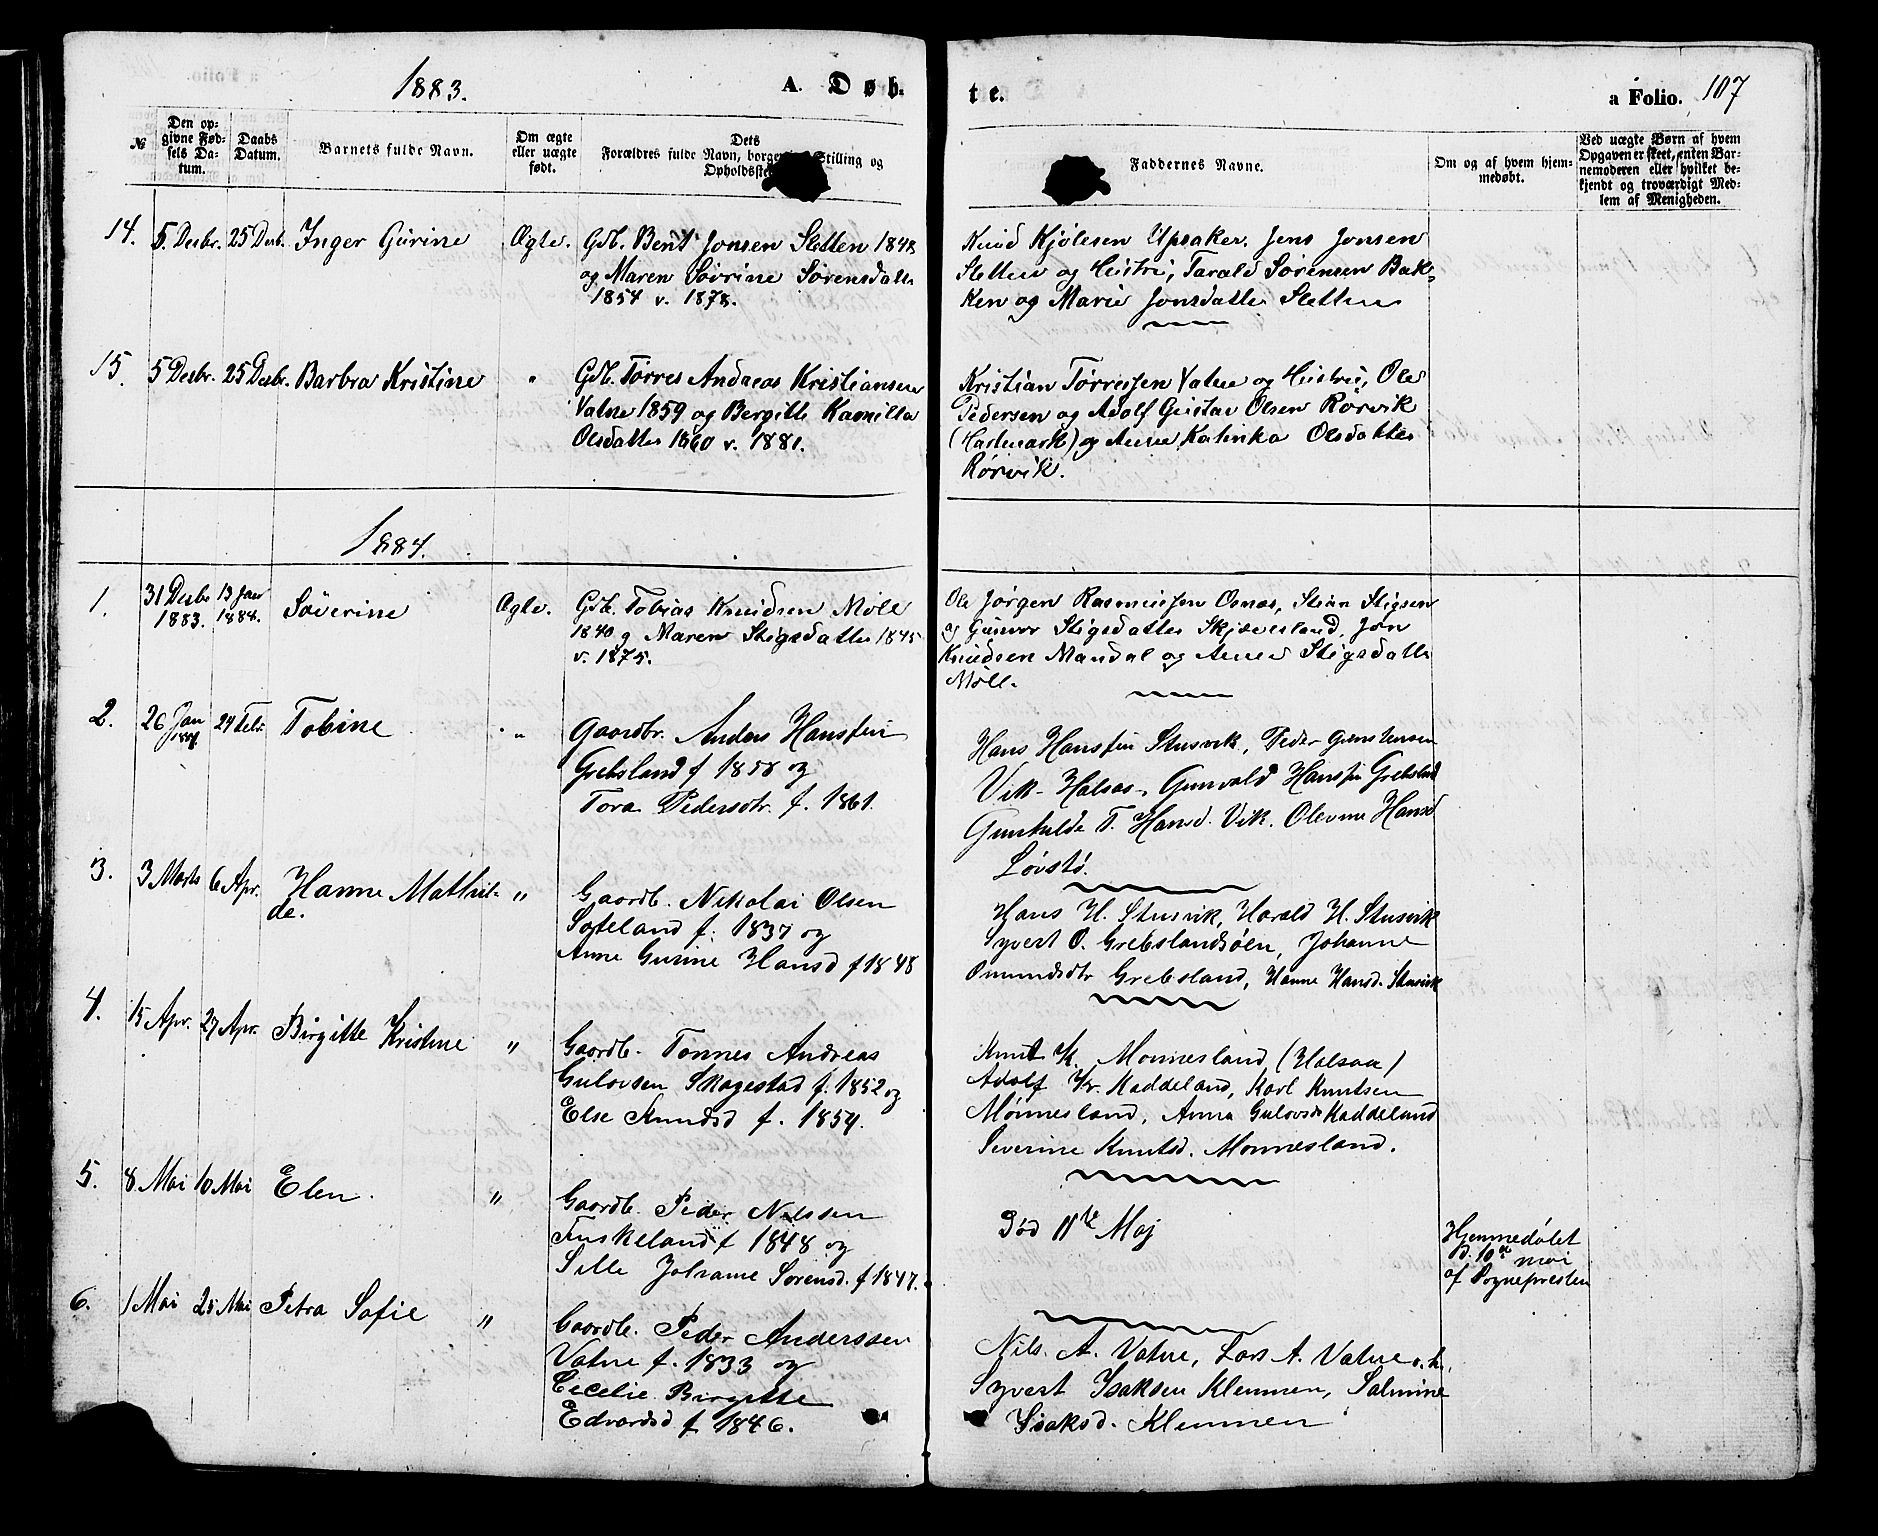 1883.
A. Døb-
te.
a Folio. 107
№
Den op-
givne Fød-
sels Da-
tum.
Daabs
Datum.
Barnets fulde Navn.
Om ægte
eller uægte
født.
Dets
Forældres fulde Navn, borgerlige Stilling og
Opholdssted
Faddernes Navne.
Om og af hvem hjem-
medøbt.
Ved uægte Børn af hvem
Opgaven er skeet, enten Bar-
nemoderen eller hvilket be-
kjendt og troværdigt Med-
lem af Menigheden.
14. 5. Desbr. 25 Desb. Inger Gurine Ægte. Gdb. Bent Jonsen Sletten 1848
og Maren Sovrine Sørensdatter
1854 v. 1878.
Knud Kjølesen Upsaker, Jens Jonsen
Sletten og Hustru, Tarald Sørensen Bak-
ken og Marie Jonsdatter Sletten
15. 5 Desbr. 25 Desbr. Barbra Kristine " Gdb. Tørres Andreas Kristiansen
Vatne 1859 og Bergitte Kamilla
Olsdatter 1860 v. 1881.
Kristian Tørressen Vatne og Hustru, Ole
Pedersen og Adolf Gustav Olsen Rørvik
(Hartmark) og Anne Kalinka Olsdatter
Rørvik.
1884.
1. 31 Desbr 1883. 13 Jan 1884. Søverine Ægte. Gdb. Tobias Knudsen Møll
1840 og Maren Stigsdatter 1845
v. 1875.
Ole Jørgen Rasmussen Osnes, Stian Stigsen
og Gunvor Stigsdatter Skjævesland, Jon
Knudsen Mandal og Anne Stigsdatter
Møll.
2. 26 Jan 24 Febr. Tobine " Gaardbr. Anders Hanssen
Grebsland f 1858 og
Tora Pedersdtr. f. 1861.
Hans Hanssen Stusvik, Peder
Vik - Halsaa, Gunvald Hanssen Grebsland
Gunhilde T. Hansd. Vik. Olevine Hansd
Løvstø.
3. 3 Marts 6 Apr. Hanne Mathil- "
de.
Gaardb. Nikolai Olsen
Søteland f. 1837 og
Anne Gurine Hansd f 1848
Hans H. Stusvik, Harald H. Stusvik
Syvert O. Grebslandsøen, Johanne
Omundsdtr Grebsland, Hanne Hansd. Stusvik
4. 15 Apr. 27 Apr. Birgitte Kristine " Gaardb. Tønnes Andreas
Gulovsen Skagestad f. 1852 og
Else Knudsd f. 1854.
Knut K. Monnesland (Halsaa)
Adolf Kr. Kaddeland, Karl Knutsen
Mønnesland, Anna Gulovsdr Kaddeland
Severine Knutsd. Monnesland.
5. 8 Mai 10 Mai Elen. " Gaardb. Peder Nilssen
Tuskeland f 1848 og
Sille Johanne Sørensd. f 1847.
Død 11te Maj
Hjemmedøbt
d. 10de mai
af Sognepresten
6. 1 Mai 25 Mai Petra Sofie " Gaardb. Peder Anderssen
Vatne f. 1833 og
Cecelie Birgitte
Edvardsd f 1846.
Nils. A. Vatne, Lars A. Vatne o. h.
Syvert Isaksen Klemmen, Salmine
Isaksd. Klemmen